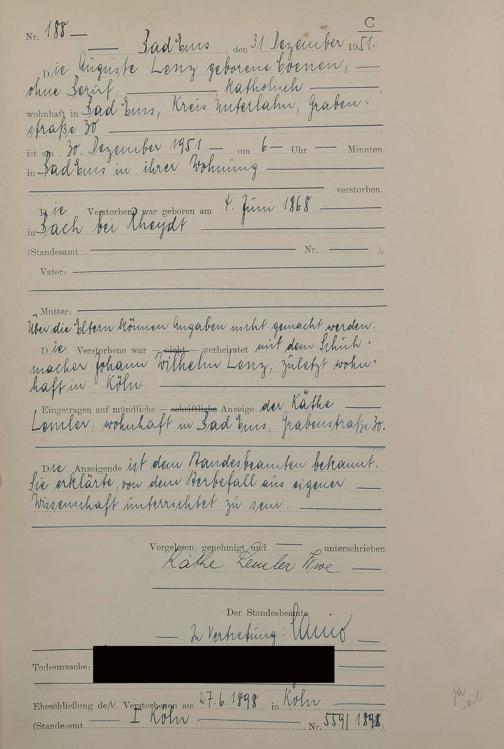 C
Nr. 188
Bad Ems, den 31. Dezember 1951.
Die Auguste Lenz geborene Coenen,
ohne Beruf, katholisch
wohnhaft in Bad Ems, Kreis Unterlahn, Graben-
straße 30
ist am 30. Dezember 1951 um 6 Uhr Minuten
in Bad Ems in ihrer Wohnung
verstorben.
Die Verstorbene war geboren am 4. Juni 1868
in Bach bei Rheydt
(Standesamt Nr. ),
Vater:
Mutter:
Über die Eltern können Angaben nicht gemacht werden.
Die Verstorbene war nicht verheiratet mit dem Schuh-
macher Johann Wilhelm Lenz, zuletzt wohn-
haft in Köln.
Eingetragen auf mündliche schriftliche Anzeige der Käthe
Lemler, wohnhaft in Bad Ems, Grabenstraße 30.
Die Anzeigende ist dem Standesbeamten bekannt.
Sie erklärte, von dem Sterbefall aus eigener
Wissenschaft unterrichtet zu sein.
Vorgelesen, genehmigt und unterschrieben
Käthe Lemler Wwe
Der Standesbeamte
In Vertretung:
Todesursache:
Eheschließung der Verstorbenen am 27.6.1898 in Köln
(Standesamt I Köln Nr. 559/1898).